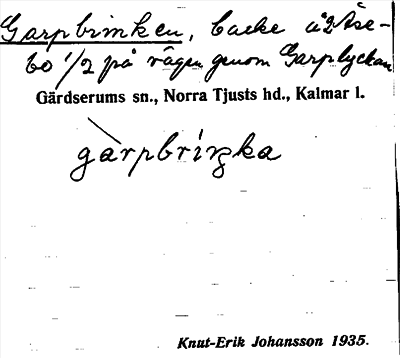 Garpbrinken, backe å 2 Åse-
bo 1/2 på vägen genom Garplyckan
Gärdserums sn., Norra Tjusts hd., Kalmar l.
gàrpbrìŋka
Knut-Erik Johansson 1935.